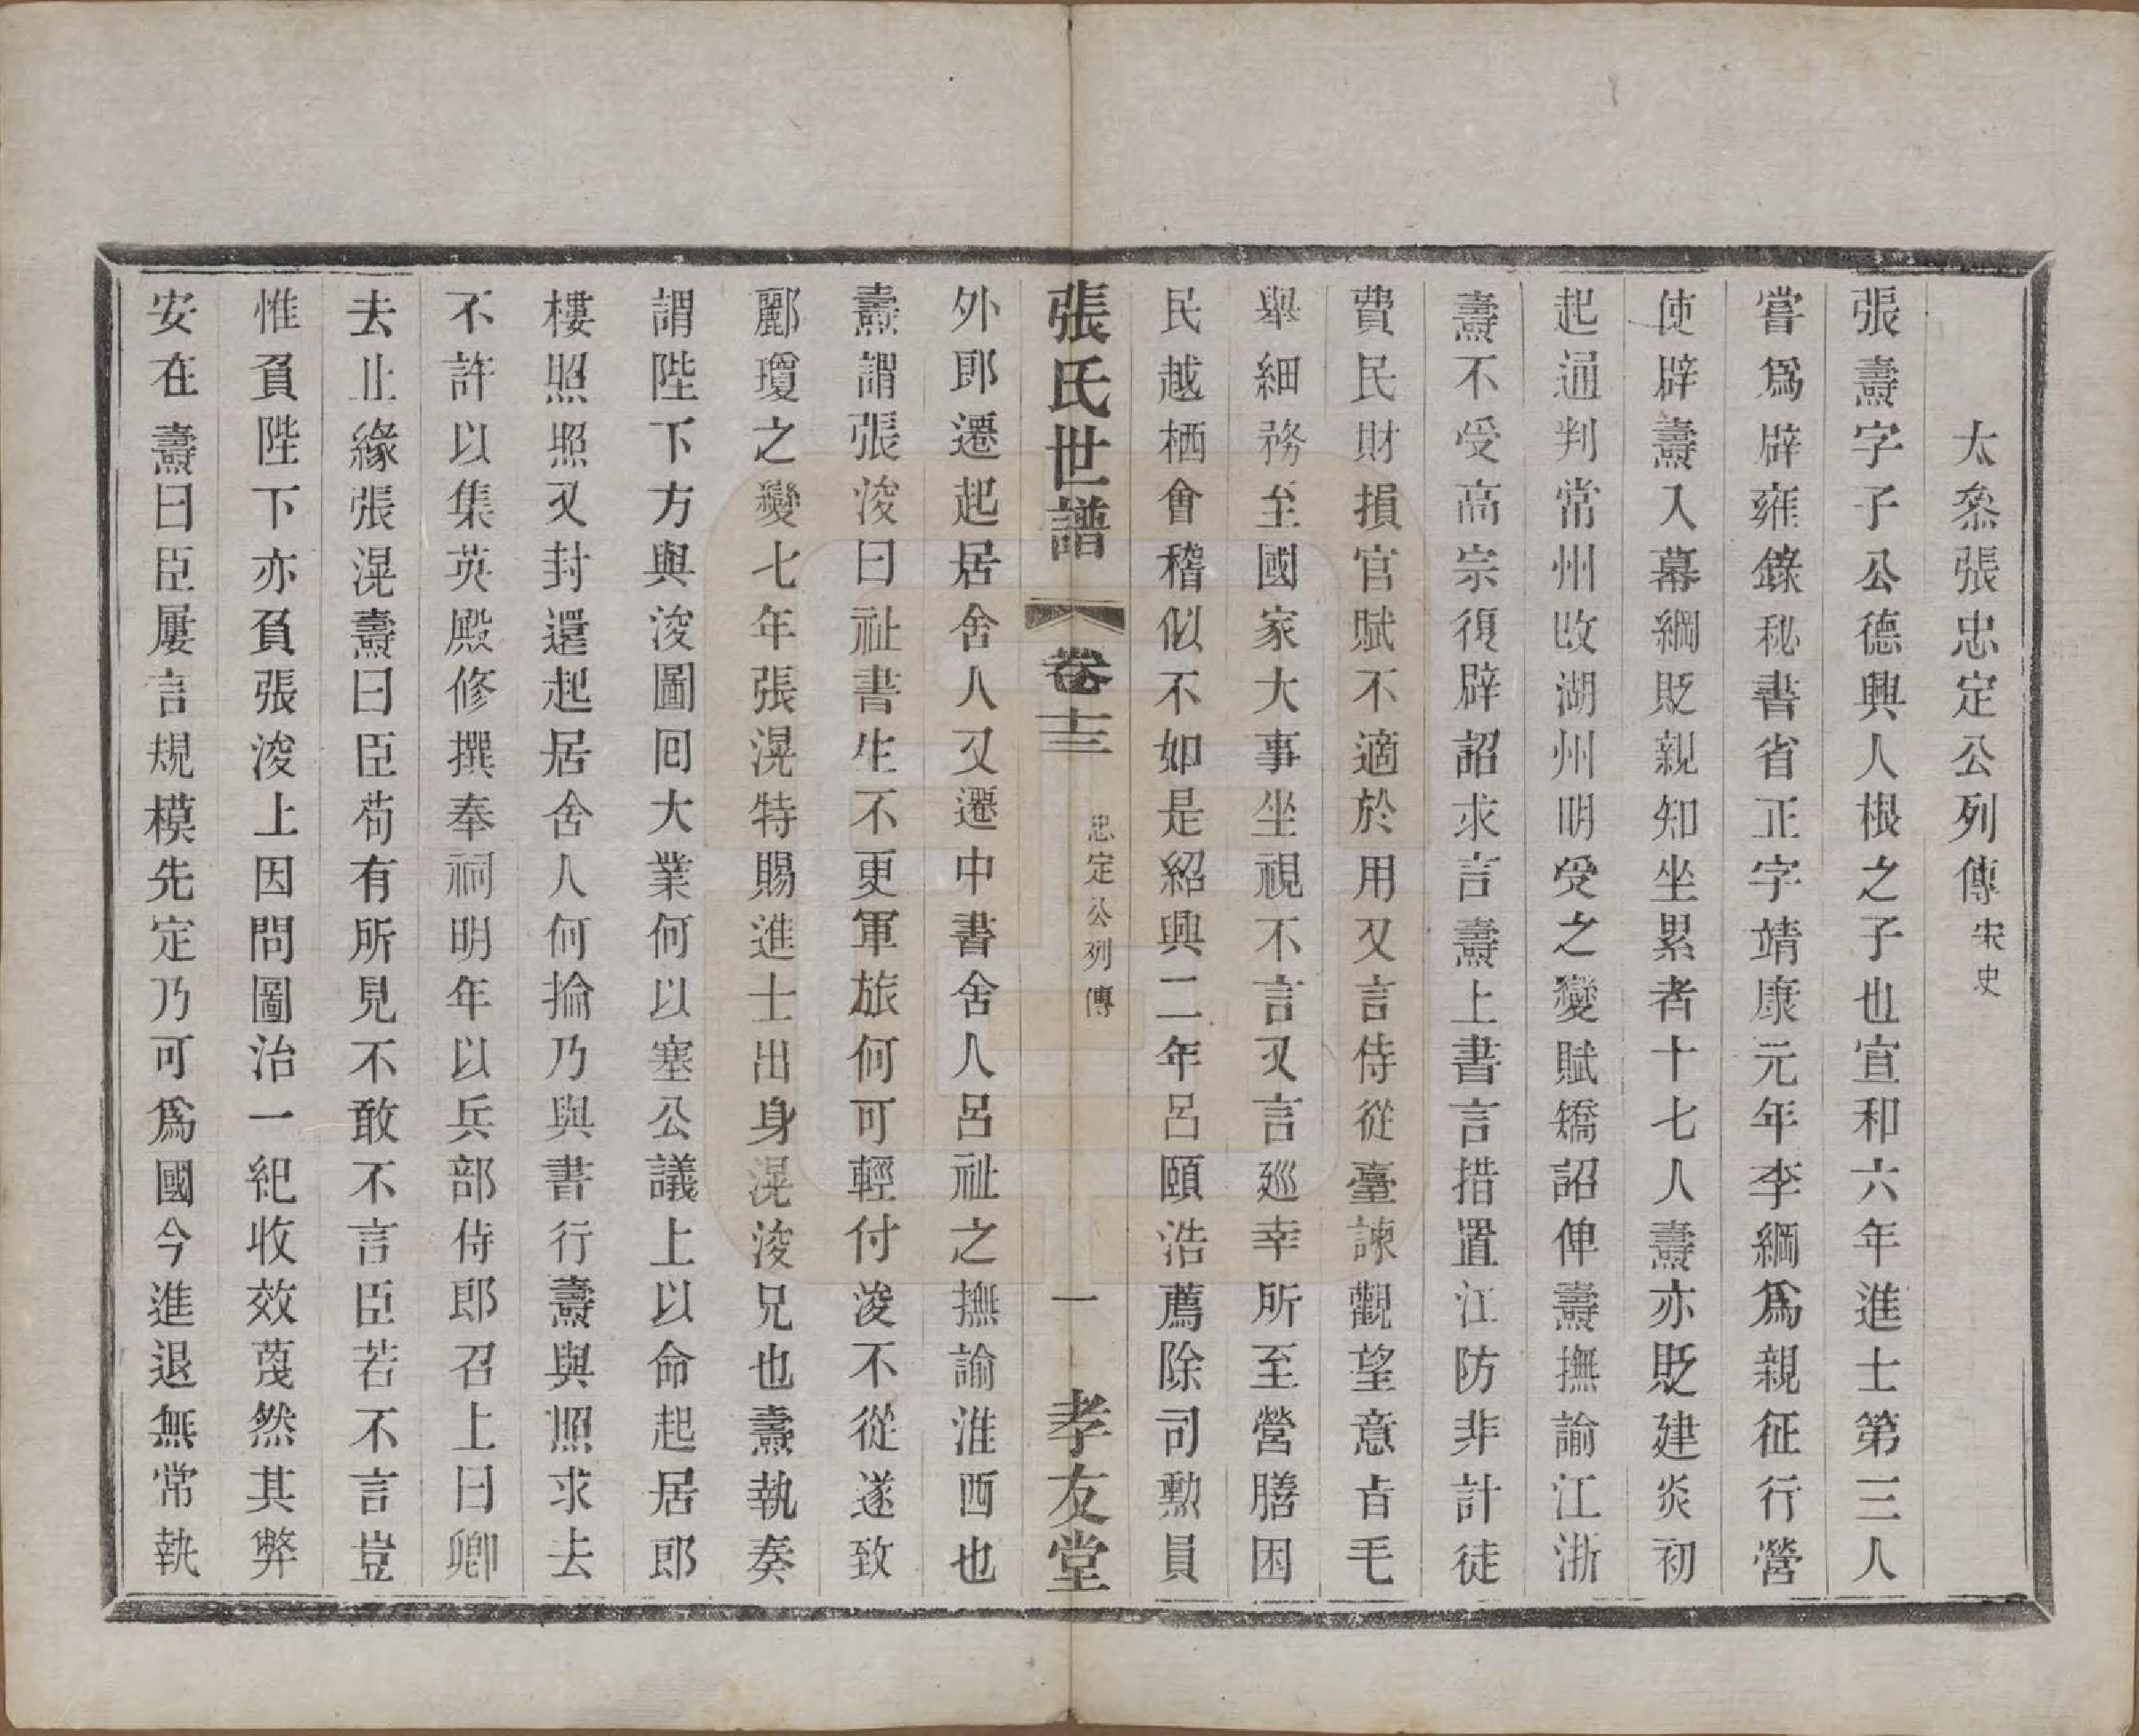 太叅張忠定公列傳宋史
張燾字子公德興人根之子也宣和六年進士第三人
嘗爲辟雍錄秘書省正字靖康元年李綱爲親征行營
使辟燾入幕綱貶親知坐累者十七人燾亦貶建炎初
起通判常州改湖州明受之變賊矯詔俾燾撫諭江浙
燾不受高宗復辟詔求言燾上書言措置江防非計徒
費民財損官賦不適於用又言侍從臺諫觀望意㫖毛
舉細務至國家大事坐視不言又言廵幸所至營膳困
民越栖會稽似不如是紹興二年呂頤浩薦除司勲員
張氏世譜 卷十三 忠定公列傳 一 孝友堂
外郎遷起居舍人又遷中書舍人呂祉之撫諭淮西也
燾謂張浚曰祉書生不更軍旅何可輕付浚不從遂致
酈瓊之變七年張滉特賜進士出身滉浚兄也燾執奏
謂陛下方與浚圖囘大業何以塞公議上以命起居郎
樓炤炤又封還起居舍人何掄乃與書行燾與炤求去
不許以集英殿修撰奉祠明年以兵部侍郎召上曰卿
去止緣張滉燾曰臣苟有所見不敢不言臣若不言豈
惟負陛下亦負張浚上因問圖治一紀收效蔑然其弊
安在燾曰臣屢言規模先定乃可爲國今進退無常執